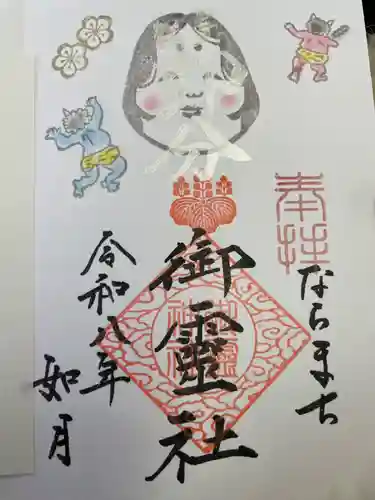 奉拝
ならまち
御霊神社
御靈社
令和八年
如月